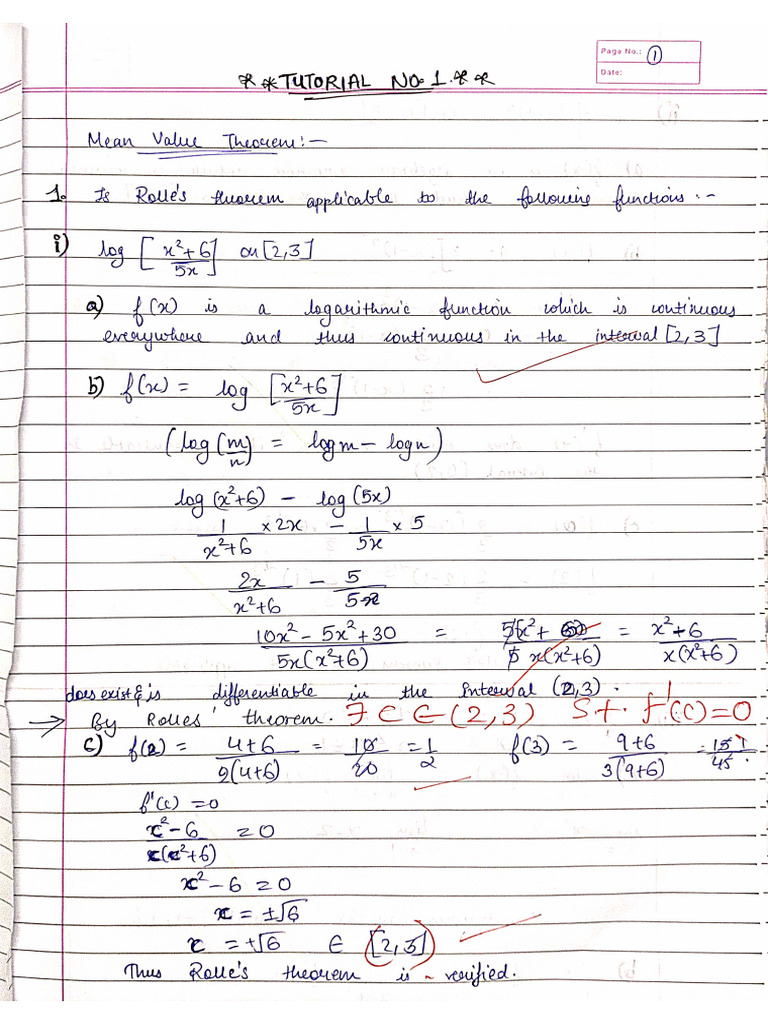 Page No.: 1
Date:
* * TUTORIAL NO. 1. * *
Mean Value Theorem:-
1. Is Rolle's theorem applicable to the following functions :-
i) log [x²+6 / 5x] on [2,3]
a) f(x) is a logarithmic function which is continuous
everywhere and thus continuous in the interval [2,3]
b) f(x) = log [x²+6 / 5x]
(log(m/n) = log m - log n)
log(x²+6) - log(5x)
1/(x²+6) × 2x - 1/5x × 5
2x/(x²+6) - 5/5x
(10x² - 5x² + 30)/(5x(x²+6)) = 5(x²+ 6)/(5 x(x²+6)) = (x²+6)/(x(x²+6))
does exist & is differentiable in the Interval (2,3).
→ By Rolles' theorem. ∃ C ∈ (2,3) S.t. f'(c)=0
c) f(2) = (4+6)/(2(4+6)) = 10/20 = 1/2 f(3) = (9+6)/(3(9+6)) = 15/45.
f'(c) = 0
(x²-6)/(x(x²+6)) = 0
x²-6 = 0
x = ±√6
x = +√6 ∈ [2,3]
Thus Rolle's theorem is verified.